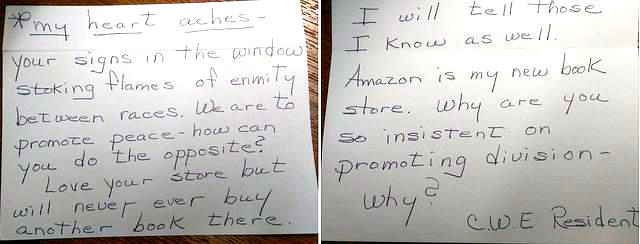 *my heart aches-
your signs in the window
stoking flames of enmity
between races. We are to
promote peace-how can
you do the opposite?
Love your store but
will never ever buy
another book there.
I will tell those
I know as well.
Amazon is my new book
store. Why are you
so insistent on
promoting division-
why?
C.W.E Resident